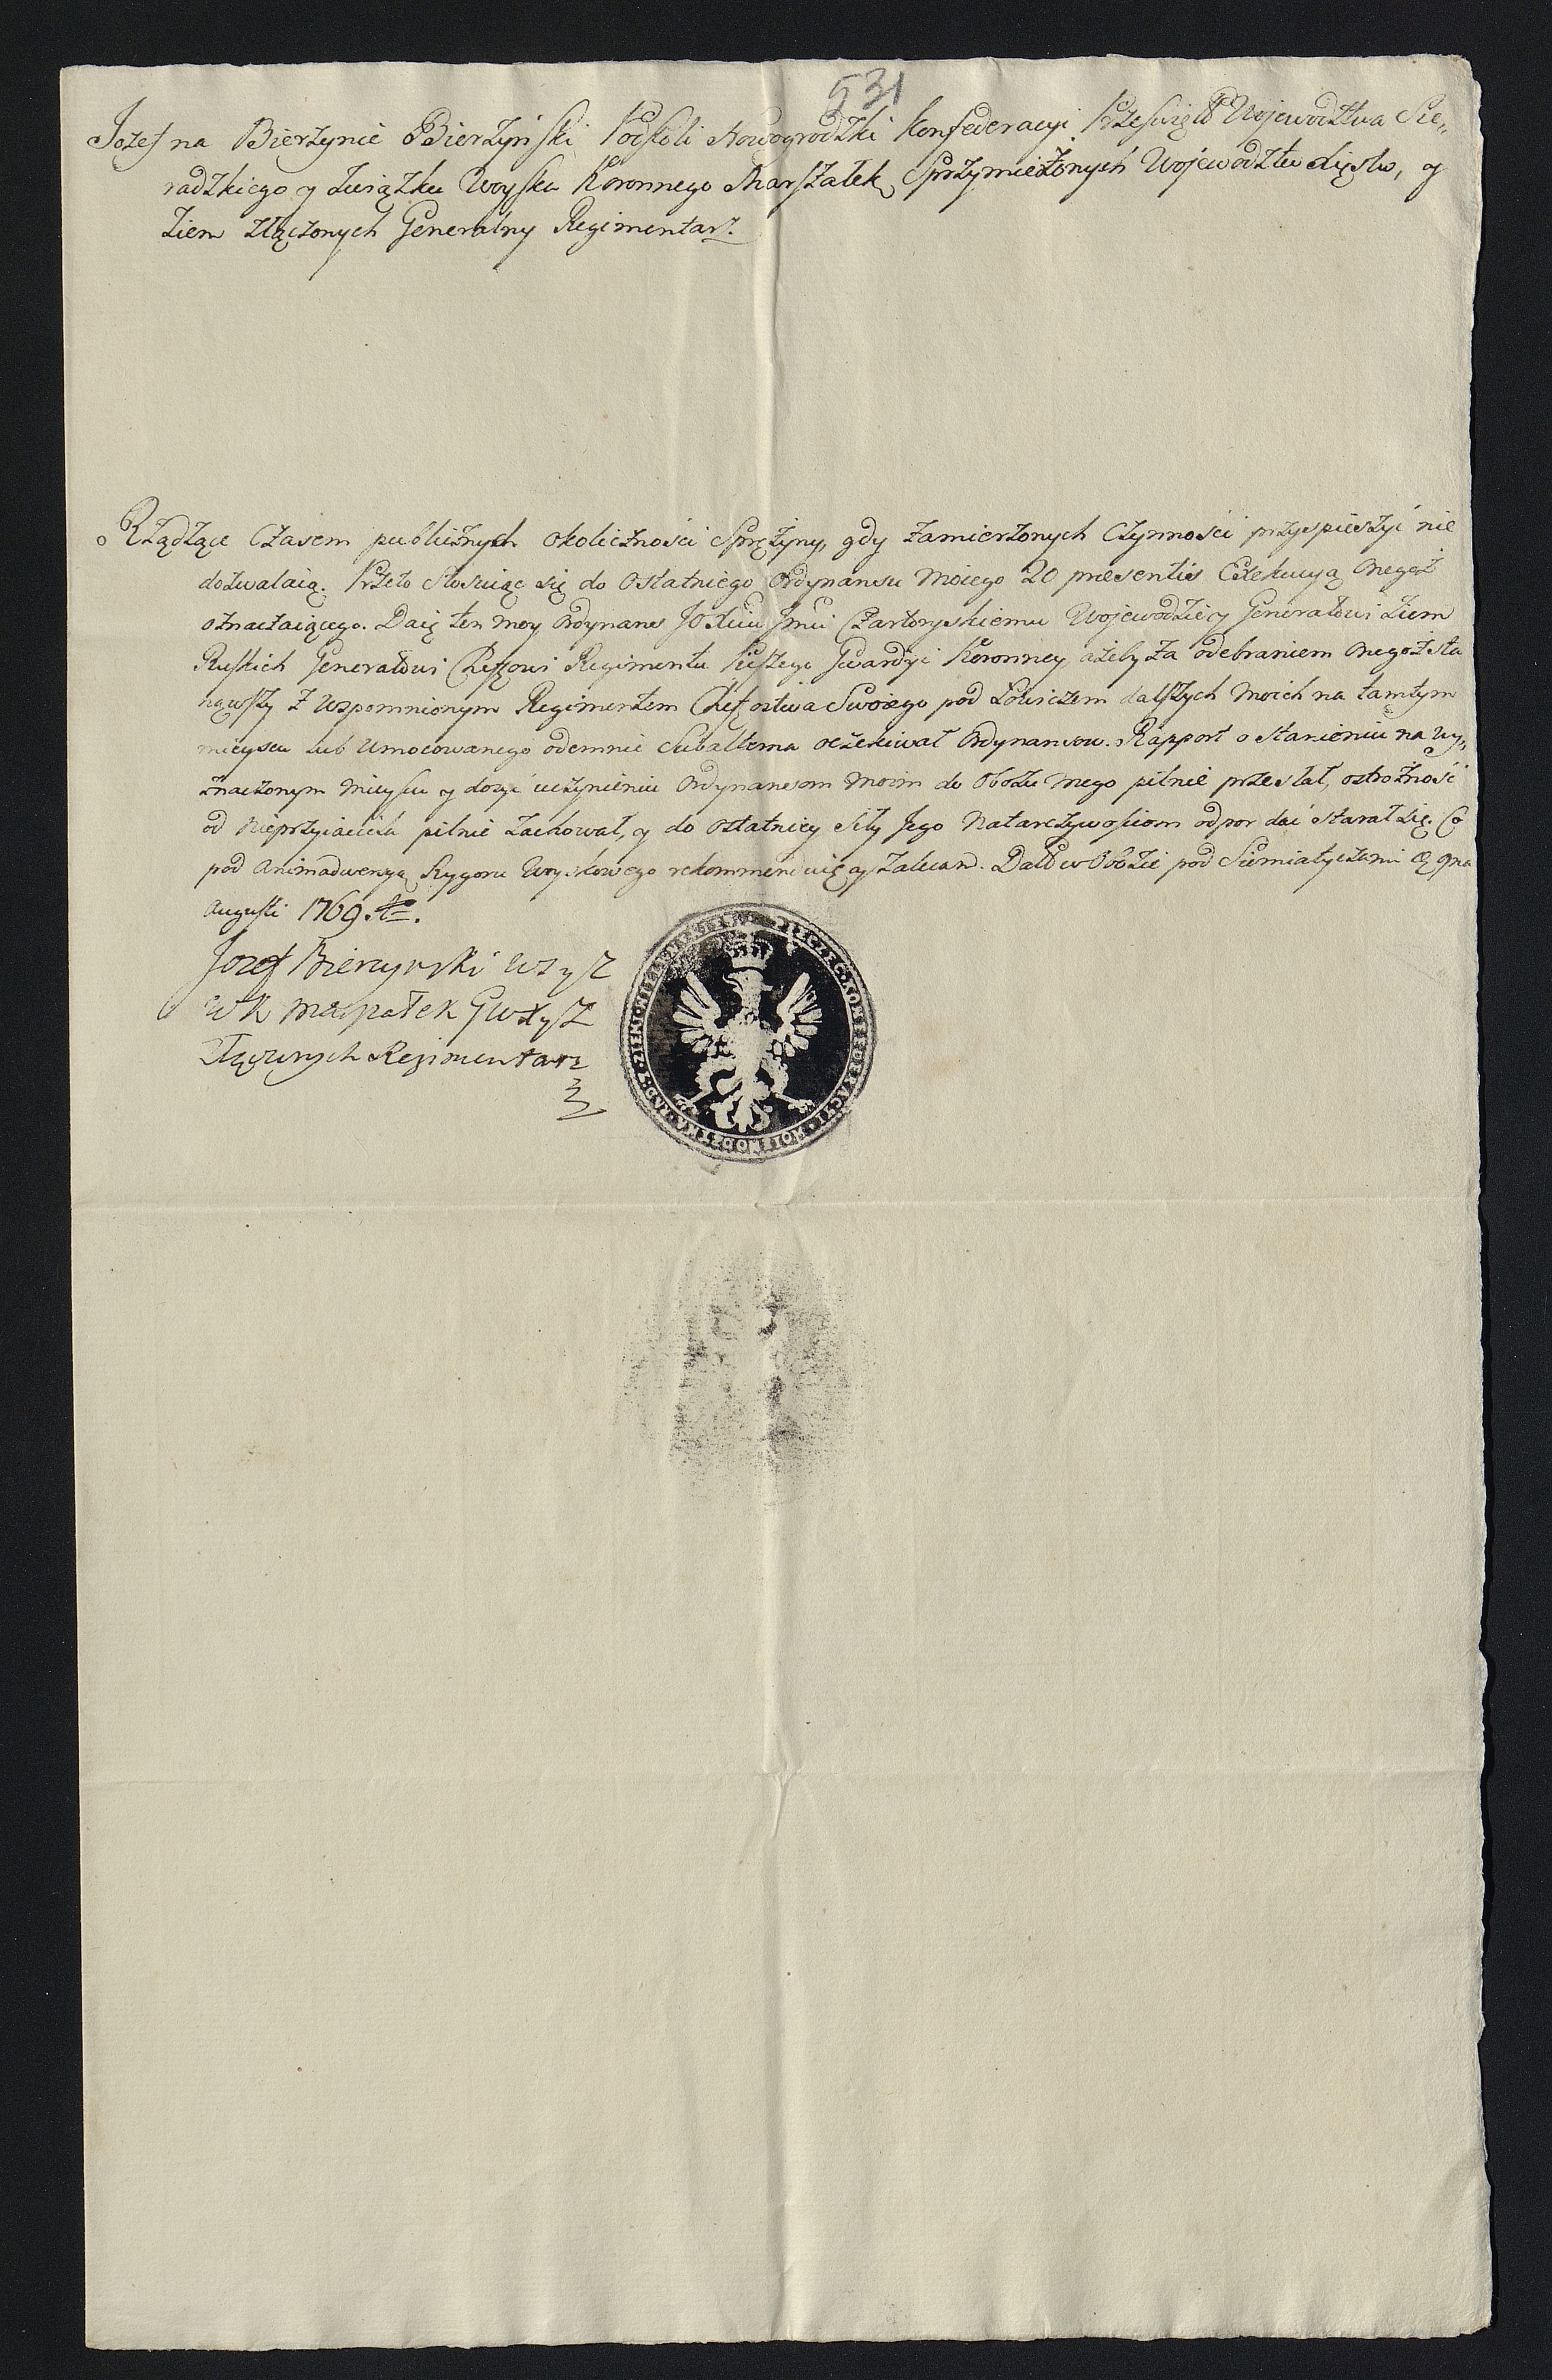 531
Jozef na Bierzynie Bierzynski Podstoli Nowogrodzki Konfederacyi Prześwięt. Wojewodztwa Sie„
radzkiego y Związku Woyska Koronnego Marszałek, Sprzymierzonych Wojewodztw Xięstw, y
Ziem Złączonych Generalny Regimentarz.
Rządzące Czasem publicznych okoliczności Sprężyny, gdy zamierzonych Czynności przyspieszyć nie
dozwalaią. Przeto stosuiąc się do ostatniego Ordynansu moiego 20 praesentis Exekucyą onegoż
oznaczaiącego. Daię ten moy Ordynans JOXciu Jmci Czartoryskiemu Wojewodzicy Generałowi Ziem
Ruskich Generałowi Cheffowi Regimentu Pieszego Gwardyi Koronney ażeby za odebraniem onegoż sta
nąwszy z wspomnionym Regimentem Cheffostwa Swoiego pod Łowiczem dalszych moich na tamtym
mieyscu lub umocowanego odemnie Subalterna oczekiwał Ordynansow. Rapport o stanieniu na wy„
znaczonym mieyscu y dosyć uczynieniu Ordynansom moim do Obozu mego pilnie przesłał, ostrożność
od nieprzyiaciela pilnie zachował, y do ostatniey siły Jego natarczywosciom odpor dać starał się. Co
pod animadwersyą Rygoru Woyskowego rekommenduię y zalecam. Datt w Obozie pod Siemiatyczami
Augusti 1769.
Jozef Bierzynski
WK Marszałek
Złączonych Regimentarz